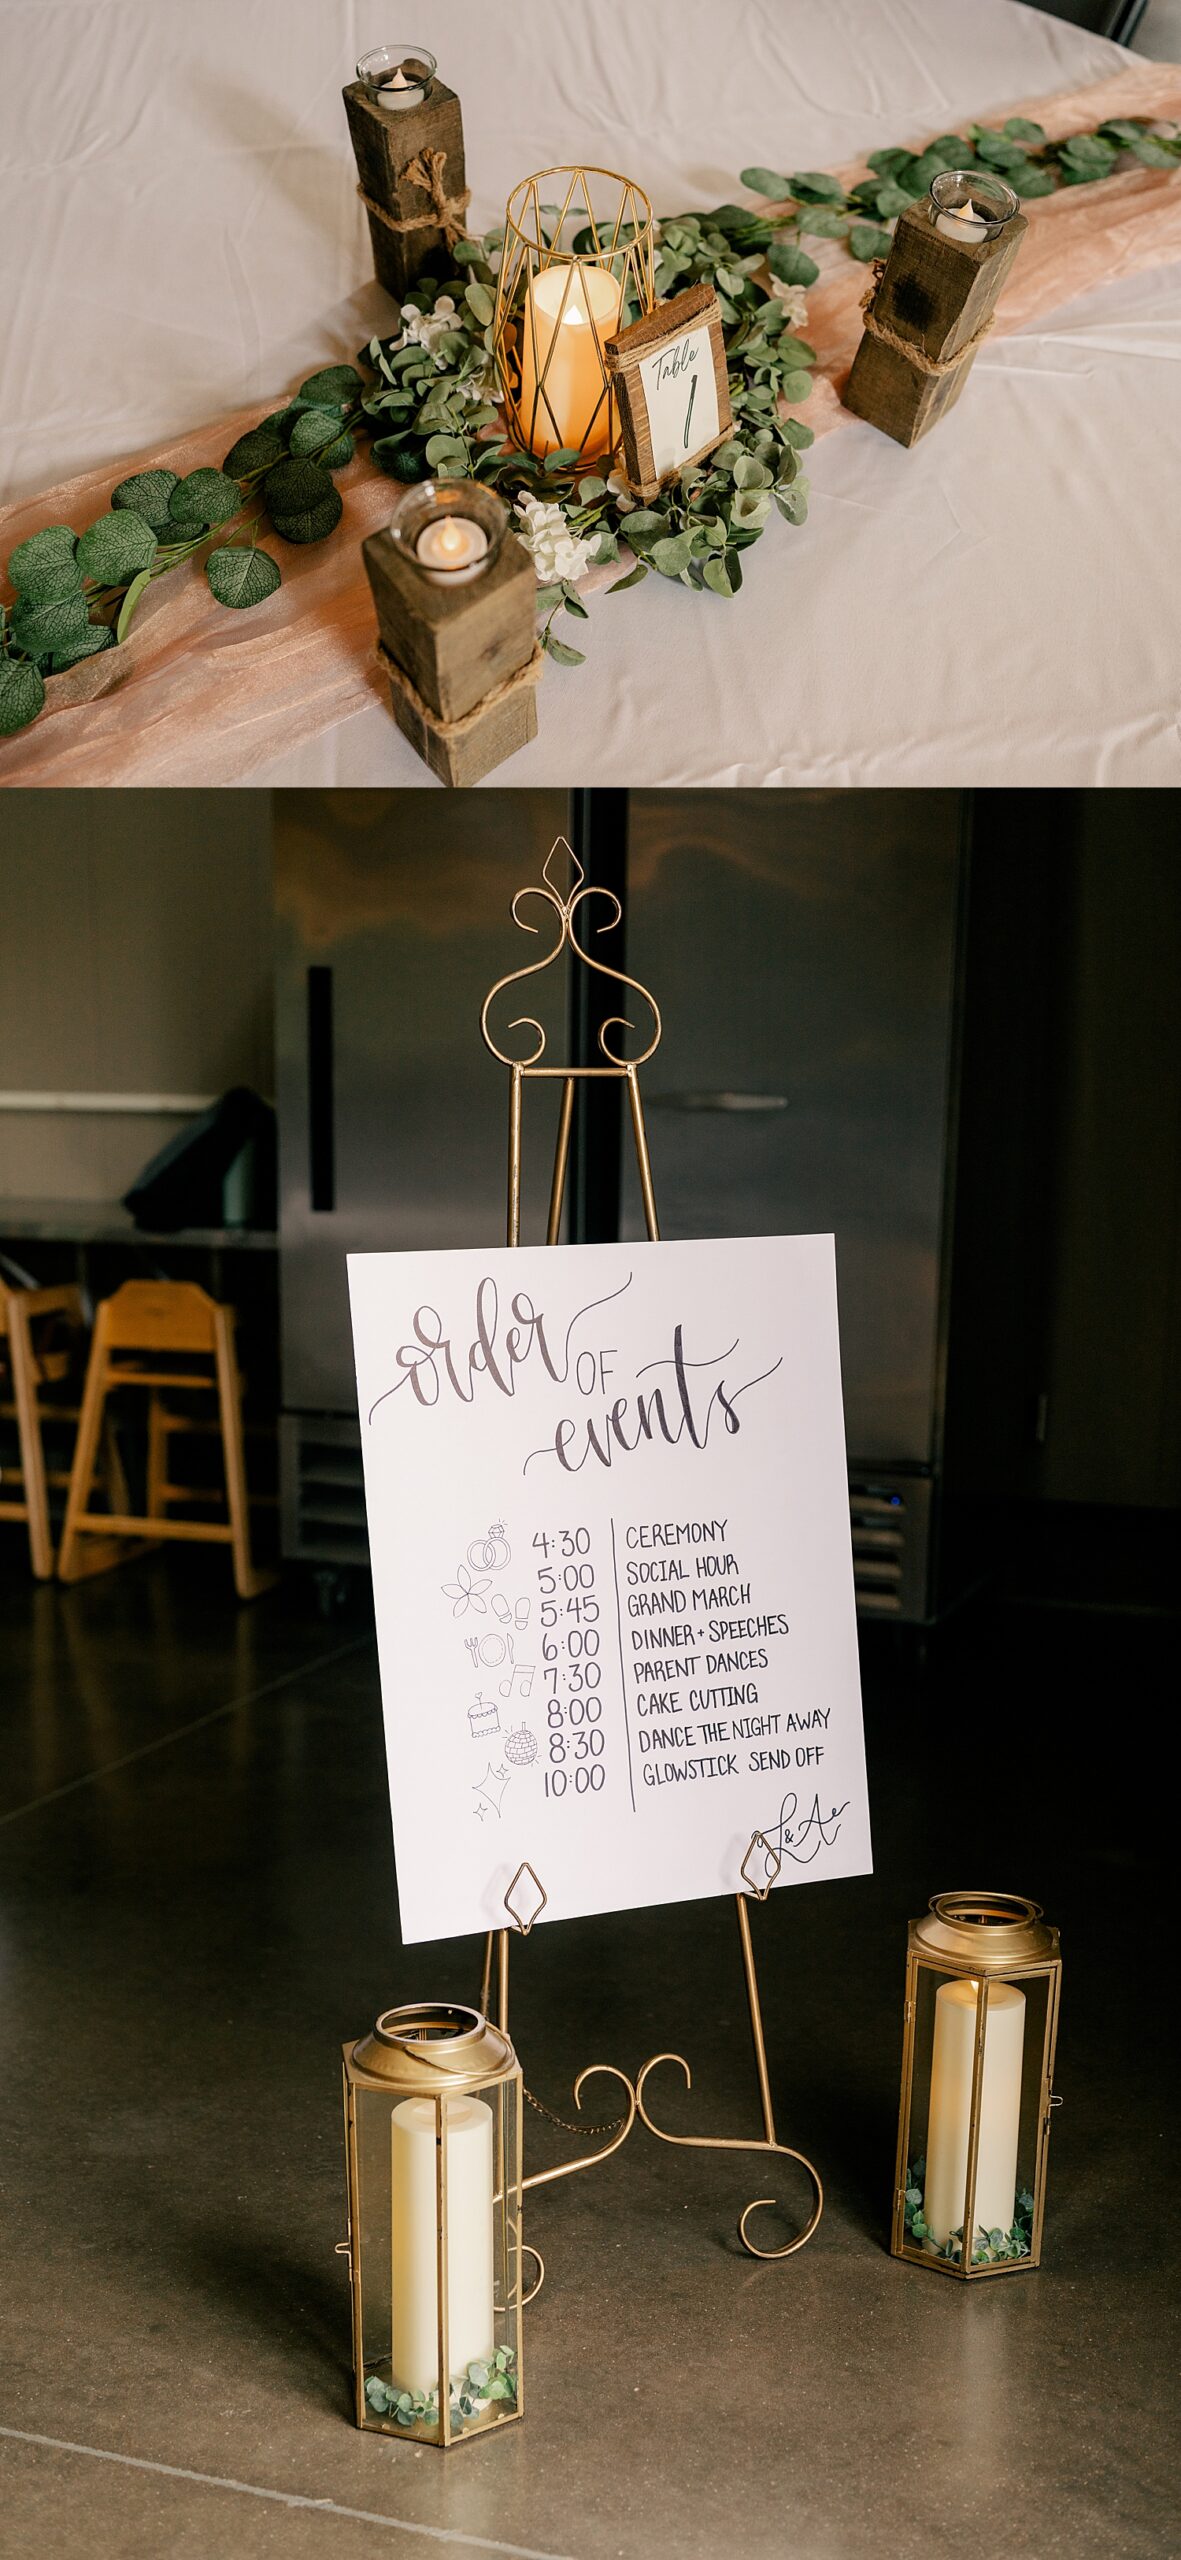 Table
1
order
OF
events
4:30 CEREMONY
5:00 SOCIAL HOUR
5:45 GRAND MARCH
6:00 DINNER + SPEECHES
7:30 PARENT DANCES
8:00 CAKE CUTTING
8:30 DANCE THE NIGHT AWAY
10:00 GLOWSTICK SEND OFF
L & A